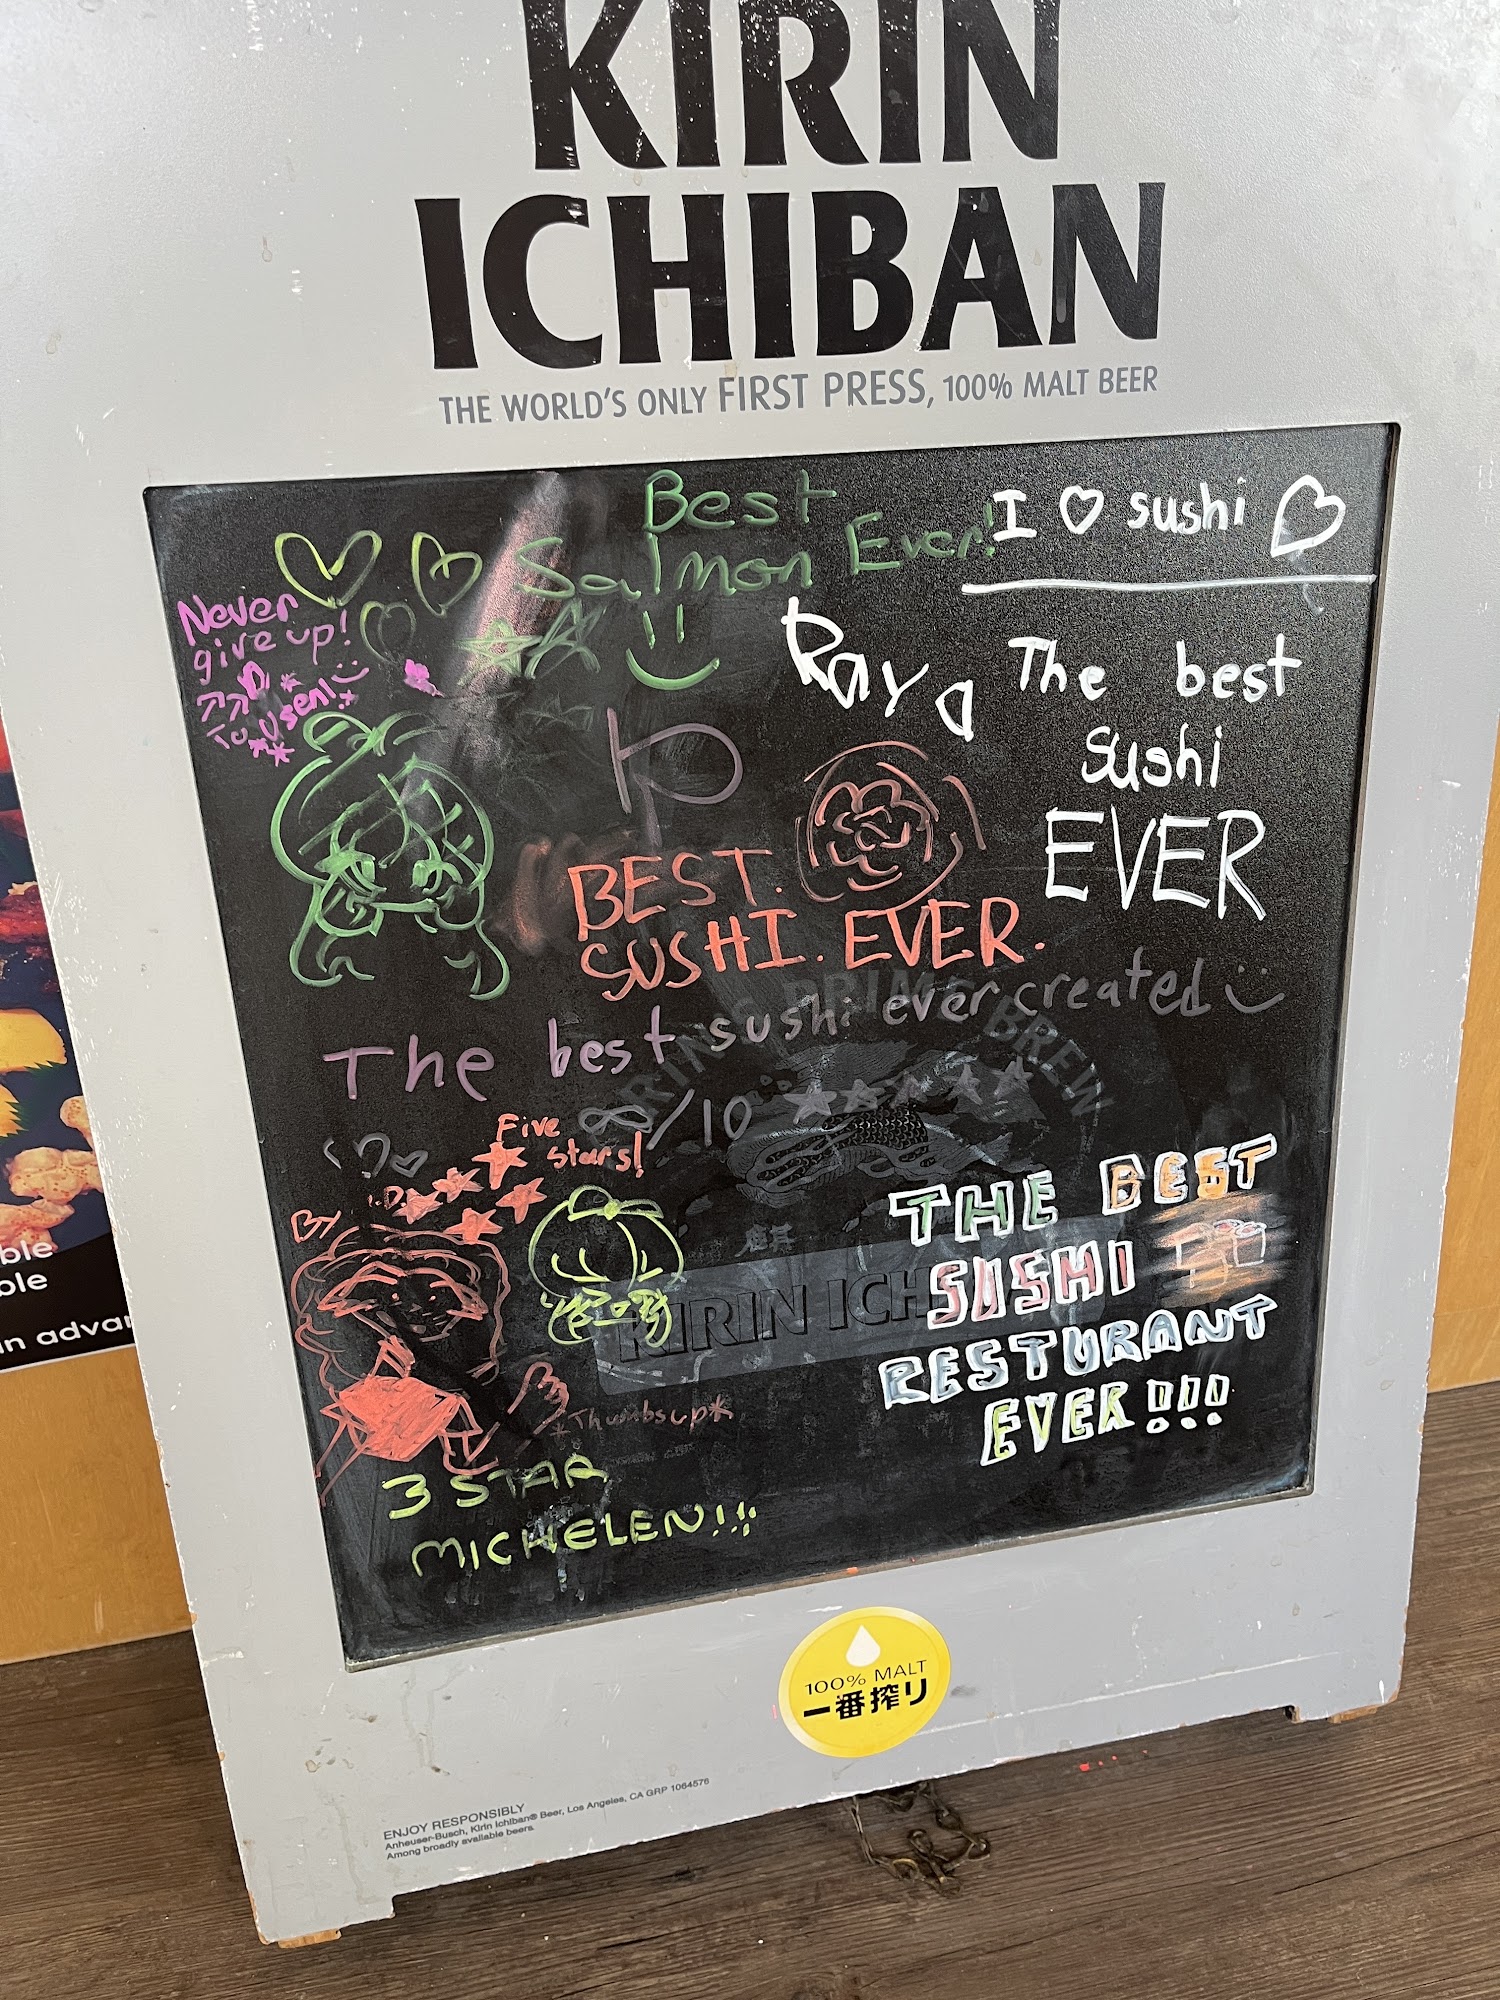 KIRIN
ICHIBAN
THE WORLD'S ONLY FIRST PRESS, 100% MALT BEER
Best
Salmon Ever!
I ♡ sushi ♡
Never
give up!
Raya
The best
sushi
EVER
BEST.
SUSHI. EVER.
The best sushi ever created
∞/10 ★★★★★
KIRIN'S PRIME BREW
Five
stars!
By
*Thumbs up*
KIRIN ICH
THE BEST
SUSHI
RESTURANT
EVER!!!
3 STAR
MICHELEN!!!
100% MALT
一番搾り
ENJOY RESPONSIBLY
Anheuser-Busch, Kirin Ichiban® Beer, Los Angeles, CA GRP 1064576
Among broadly available beers.
ble
ble
in advan